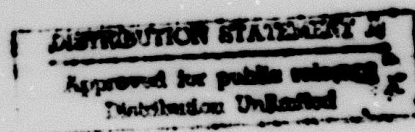 DISTRIBUTION STATEMENT A
Approved for public release
Distribution Unlimited